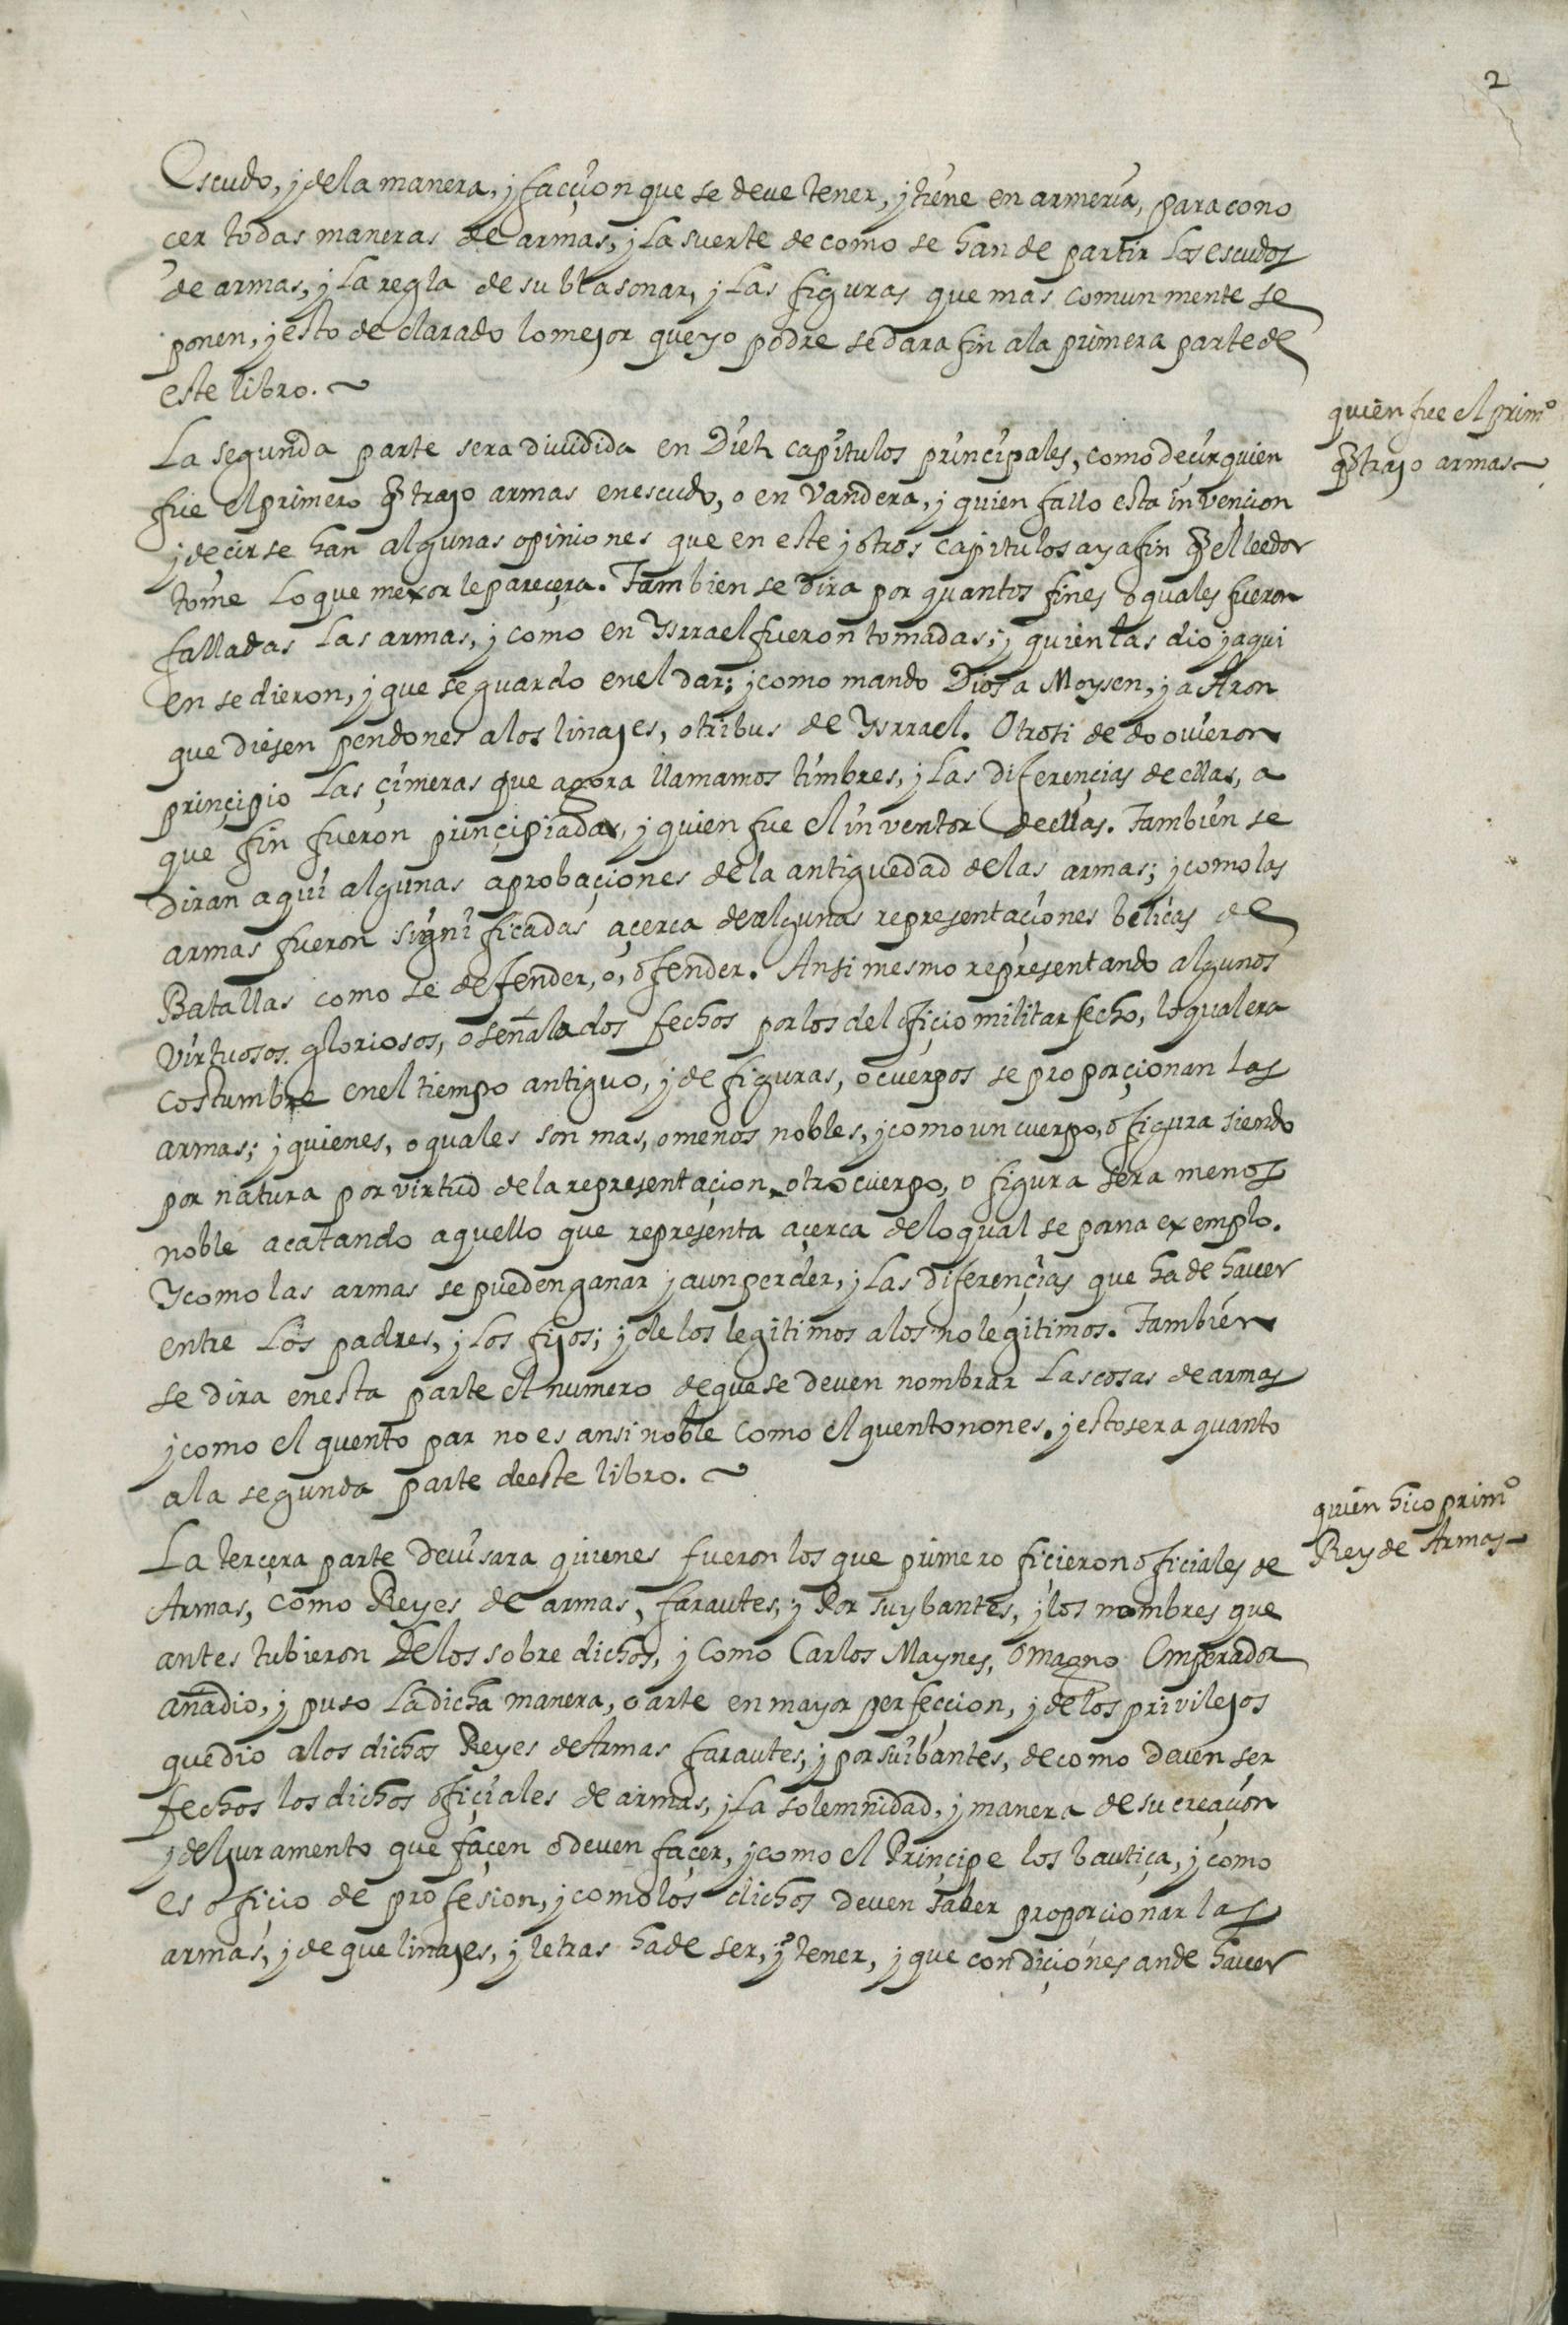 2
Escudo, y de la manera, y facçion que se deve tener, y tiene en armeria, para cono
cer todas maneras de armas, y la suerte de como se han de partir los escudos
de armas, y la regla de su blasonar, y las figuras que mas comun mente se
ponen, y esto de clarado lo mejor que yo podre se dara fin a la primera parte de
este libro.~
quien fue el prim.º
q̃ trajo armas~
La segunda parte sera diuidida en Dieh capitulos principales, como decir quien
fue el primero q̃ trajo armas en escudo, o en Vandera, y quien fallo esta invençion
y decir se han algunas opiniones que en este y otros capitulos ay a fin q̃ el leedor
tome lo que mexor le pareçera. Tambien se dira por quantos fines o quales fueron
falladas las armas, y como en Ysrrael fueron tomadas; y quien las dio y a qui
en se dieron, y que se guardo en el dar; y como mando Dios a Moysen, y a Aron
que diesen pendones a los linajes, o tribus de Ysrrael. Otrosi de do ouieron
prinçipio las çimeras que agora llamamos timbres, y las diferençias de ellas, a
que fin fueron prinçipiadas, y quien fue el inventor de ellas. Tambien se
diran aqui algunas aprobaçiones de la antiguedad de las armas; y como las
armas fueron significadas açerca de algunas representaçiones belicas de
Batallas como se defender, o, ofender. Ansi mesmo representando algunos
virtuosos gloriosos, o señalados fechos por los del ofiçio militar fecho, lo qual era
costumbre en el tiempo antiguo, y de figuras, o cuerpos se proporçionan las
armas; y quienes, o quales son mas, o menos nobles, y como un cuerpo, o figura siendo
por natura por virtud de la representaçion, otro cuerpo, o figura sera menos
noble acatando aquello que representa açerca de lo qual se porna exemplo.
Y como las armas se pueden ganar y aun perder, y las diferençias que ha de hauer
entre los padres, y los fijos; y de los legitimos a los no legitimos. Tambien
se dira en esta parte el numero de que se deven nombrar las cosas de armas
y como el quento par no es ansi noble como el quento nones. y esto sera quanto
a la segunda parte de este libro.~
quien hico prim.º
Rey de Armas~
La terçera parte deuisara quienes fueron los que primero ficieron ofiçiales de
Armas, como Reyes de armas, farautes, y Por suybantes, y los nombres que
antes tubieron de los sobre dichos, y como Carlos Maynes, o magno Emperador
añadio, y puso la dicha manera, o arte en mayor perfeçcion, y de los privilejos
que dio a los dichos Reyes de Armas farautes, y por suibantes, de como deven ser
fechos los dichos ofiçiales de armas, y la solemnidad, y manera de su creaçion
y del juramento que façen o deven façer, y como el Prinçipe los bautiça, y como
es ofiçio de profesion, y como los dichos deven saber proporcionar las
armas, y de que linajes, y letras ha de ser, y tener, y que condiçiones an de hauer